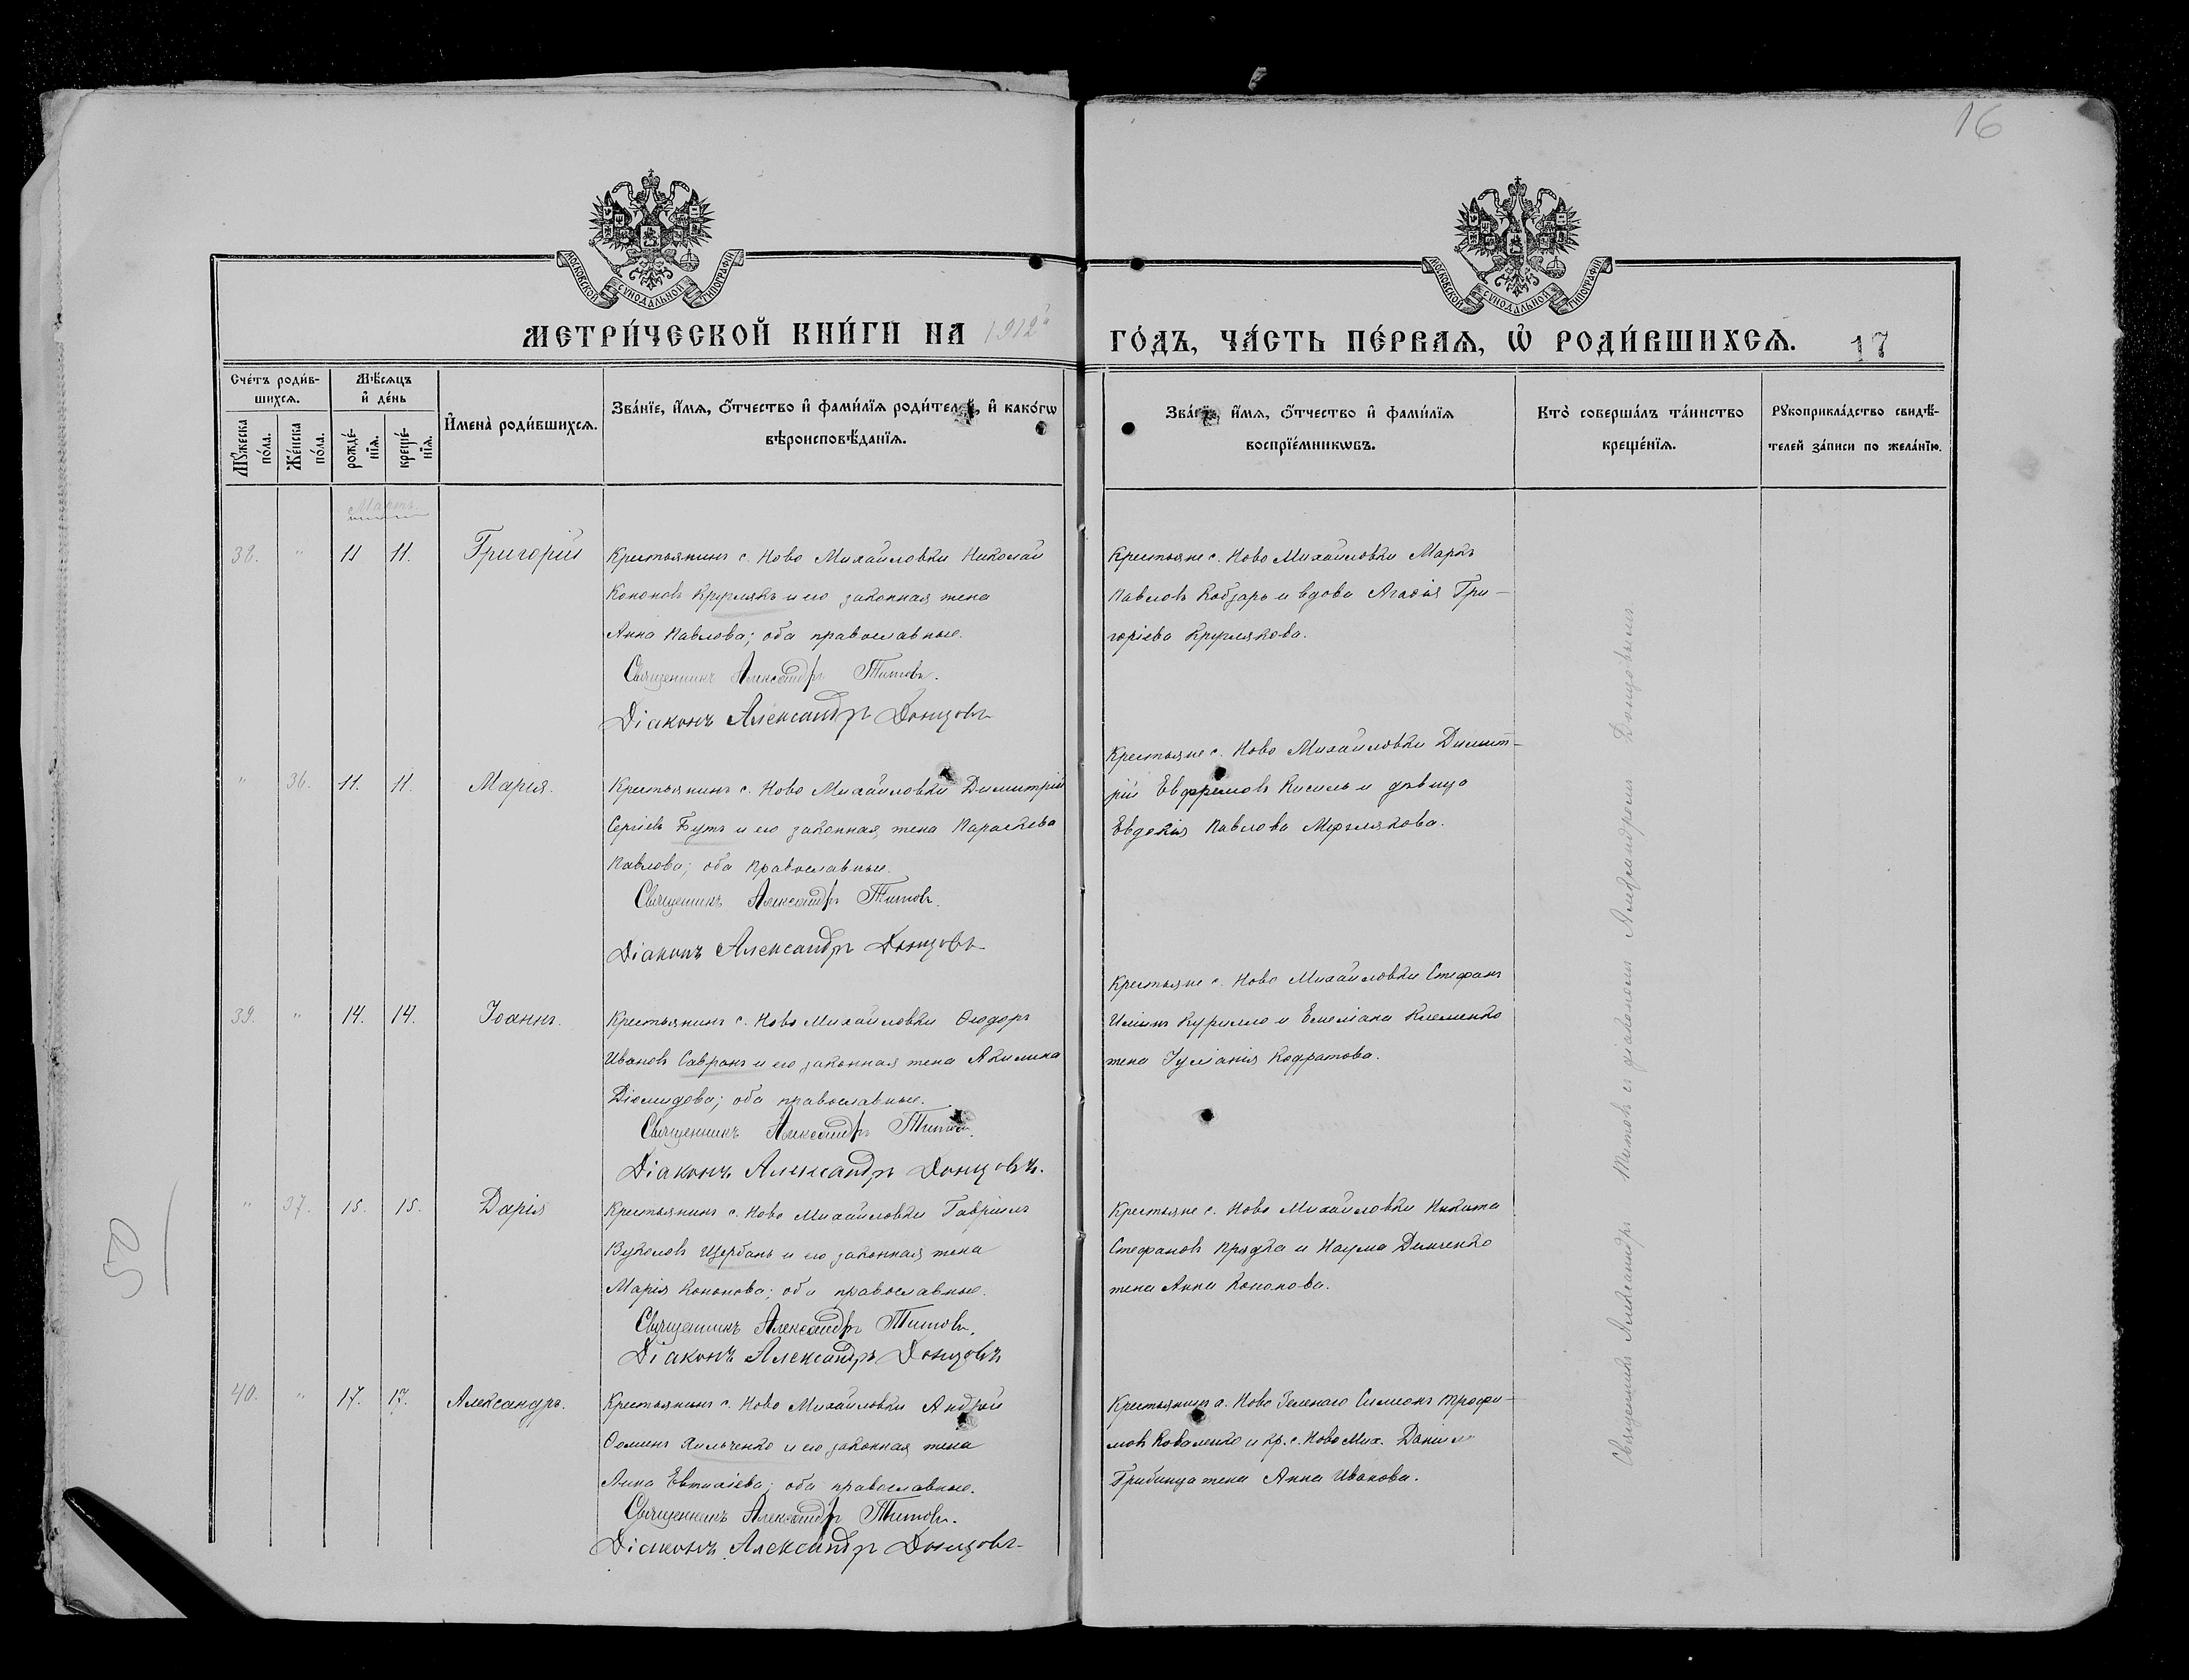 16
МОСКОВСКОЙ СѴНОДАЛЬНОЙ ТИПОГРАФІИ
МОСКОВСКОЙ СѴНОДАЛЬНОЙ ТИПОГРАФІИ
МЕТРИ́ЧЕСКОЙ КНИ́ГИ НА 1912й
ГО́ДЪ, ЧА́СТЬ ПЕ́РВАѦ, Ѡ҆ РОДИ́ВШИХСѦ.
17
Сче́тъ роди́в-
шихсѧ.
Мѣ́сѧцъ
и҆ де́нь
Мꙋ́жеска по́ла.
Же́нска по́ла.
рожде́-
нїѧ.
креще́-
нїѧ.
И҆мена̀ роди́вшихсѧ.
Зва́нїе, и҆́мѧ, ѻ҆́тчество и҆ фами́лїѧ роди́телей, и҆ како́гѡ
вѣроисповѣ́данїѧ.
Зва́нїе, и҆́мѧ, ѻ҆́тчество и҆ фами́лїѧ
воспрїе́мникѡвъ.
Кто̀ соверша́лъ та́инство
креще́нїѧ.
Рꙋкоприкла́дство свидѣ́-
телей за́писи по жела́нїю.
Мартъ.
38. " 11 11. Григорій
Крестьянинъ с. Ново Михайловки Николай
Кононовъ Круглякъ и его законная жена
Анна Павлова; оба православные.
Священникъ Александръ Титовъ.
Діаконъ Александръ Донцовъ
Крестьяне с. Ново Михайловки Маркъ
Павловъ Кобзарь и вдова Агафія Гри-
горіева Круглякова.
" 36. 11. 11. Марія.
Крестьянинъ с. Ново Михайловки Димитрій
Сергіевъ Бутъ и его законная жена Параскева
Павлова; оба православные.
Священникъ Александръ Титовъ.
Діаконъ Александръ Донцовъ
Крестьяне с. Ново Михайловки Димит-
рій Евфремовъ Кисиль и дѣвица
Евдокія Павлова
39. " 14. 14. Іоаннъ.
Крестьянинъ с. Ново Михайловки Ѳеодоръ
Ивановъ Савранъ и его законная жена Акилина
Діомидова; оба православные.
Священникъ Александръ Титовъ.
Діаконъ Александръ Донцовъ.
Крестьяне с. Ново Михайловки Стефанъ
Ильинъ Курилло и Емеліана Клеменко
жена Іуліанія Кодратова.
" 37. 15. 15. Дарія
Крестьянинъ с. Ново Михайловки Гавріилъ
Вуколовъ Щербань и его законная жена
Марія Кононова; оба православные.
Священникъ Александръ Титовъ.
Діаконъ Александръ Донцовъ
Крестьяне с. Ново Михайловки Никита
Стефановъ Прядка и Наума Демченко
жена Анна Кононова.
40. " 17. 17. Александръ.
Крестьянинъ с. Ново Михайловки Андрей
Ѳоминъ Хильченко и его законная жена
Анна Евтихіева; оба православные.
Священникъ Александръ Титовъ.
Діаконъ Александръ Донцовъ
Крестьянинъ с. Ново Зеленаго Симеонъ Трофи-
мовъ Коваленко и кр. с. Ново Мих. Даніила
Грибинца жена Анна Иванова.
Священникъ Александръ Титовъ съ діакономъ Александромъ Донцовымъ
50